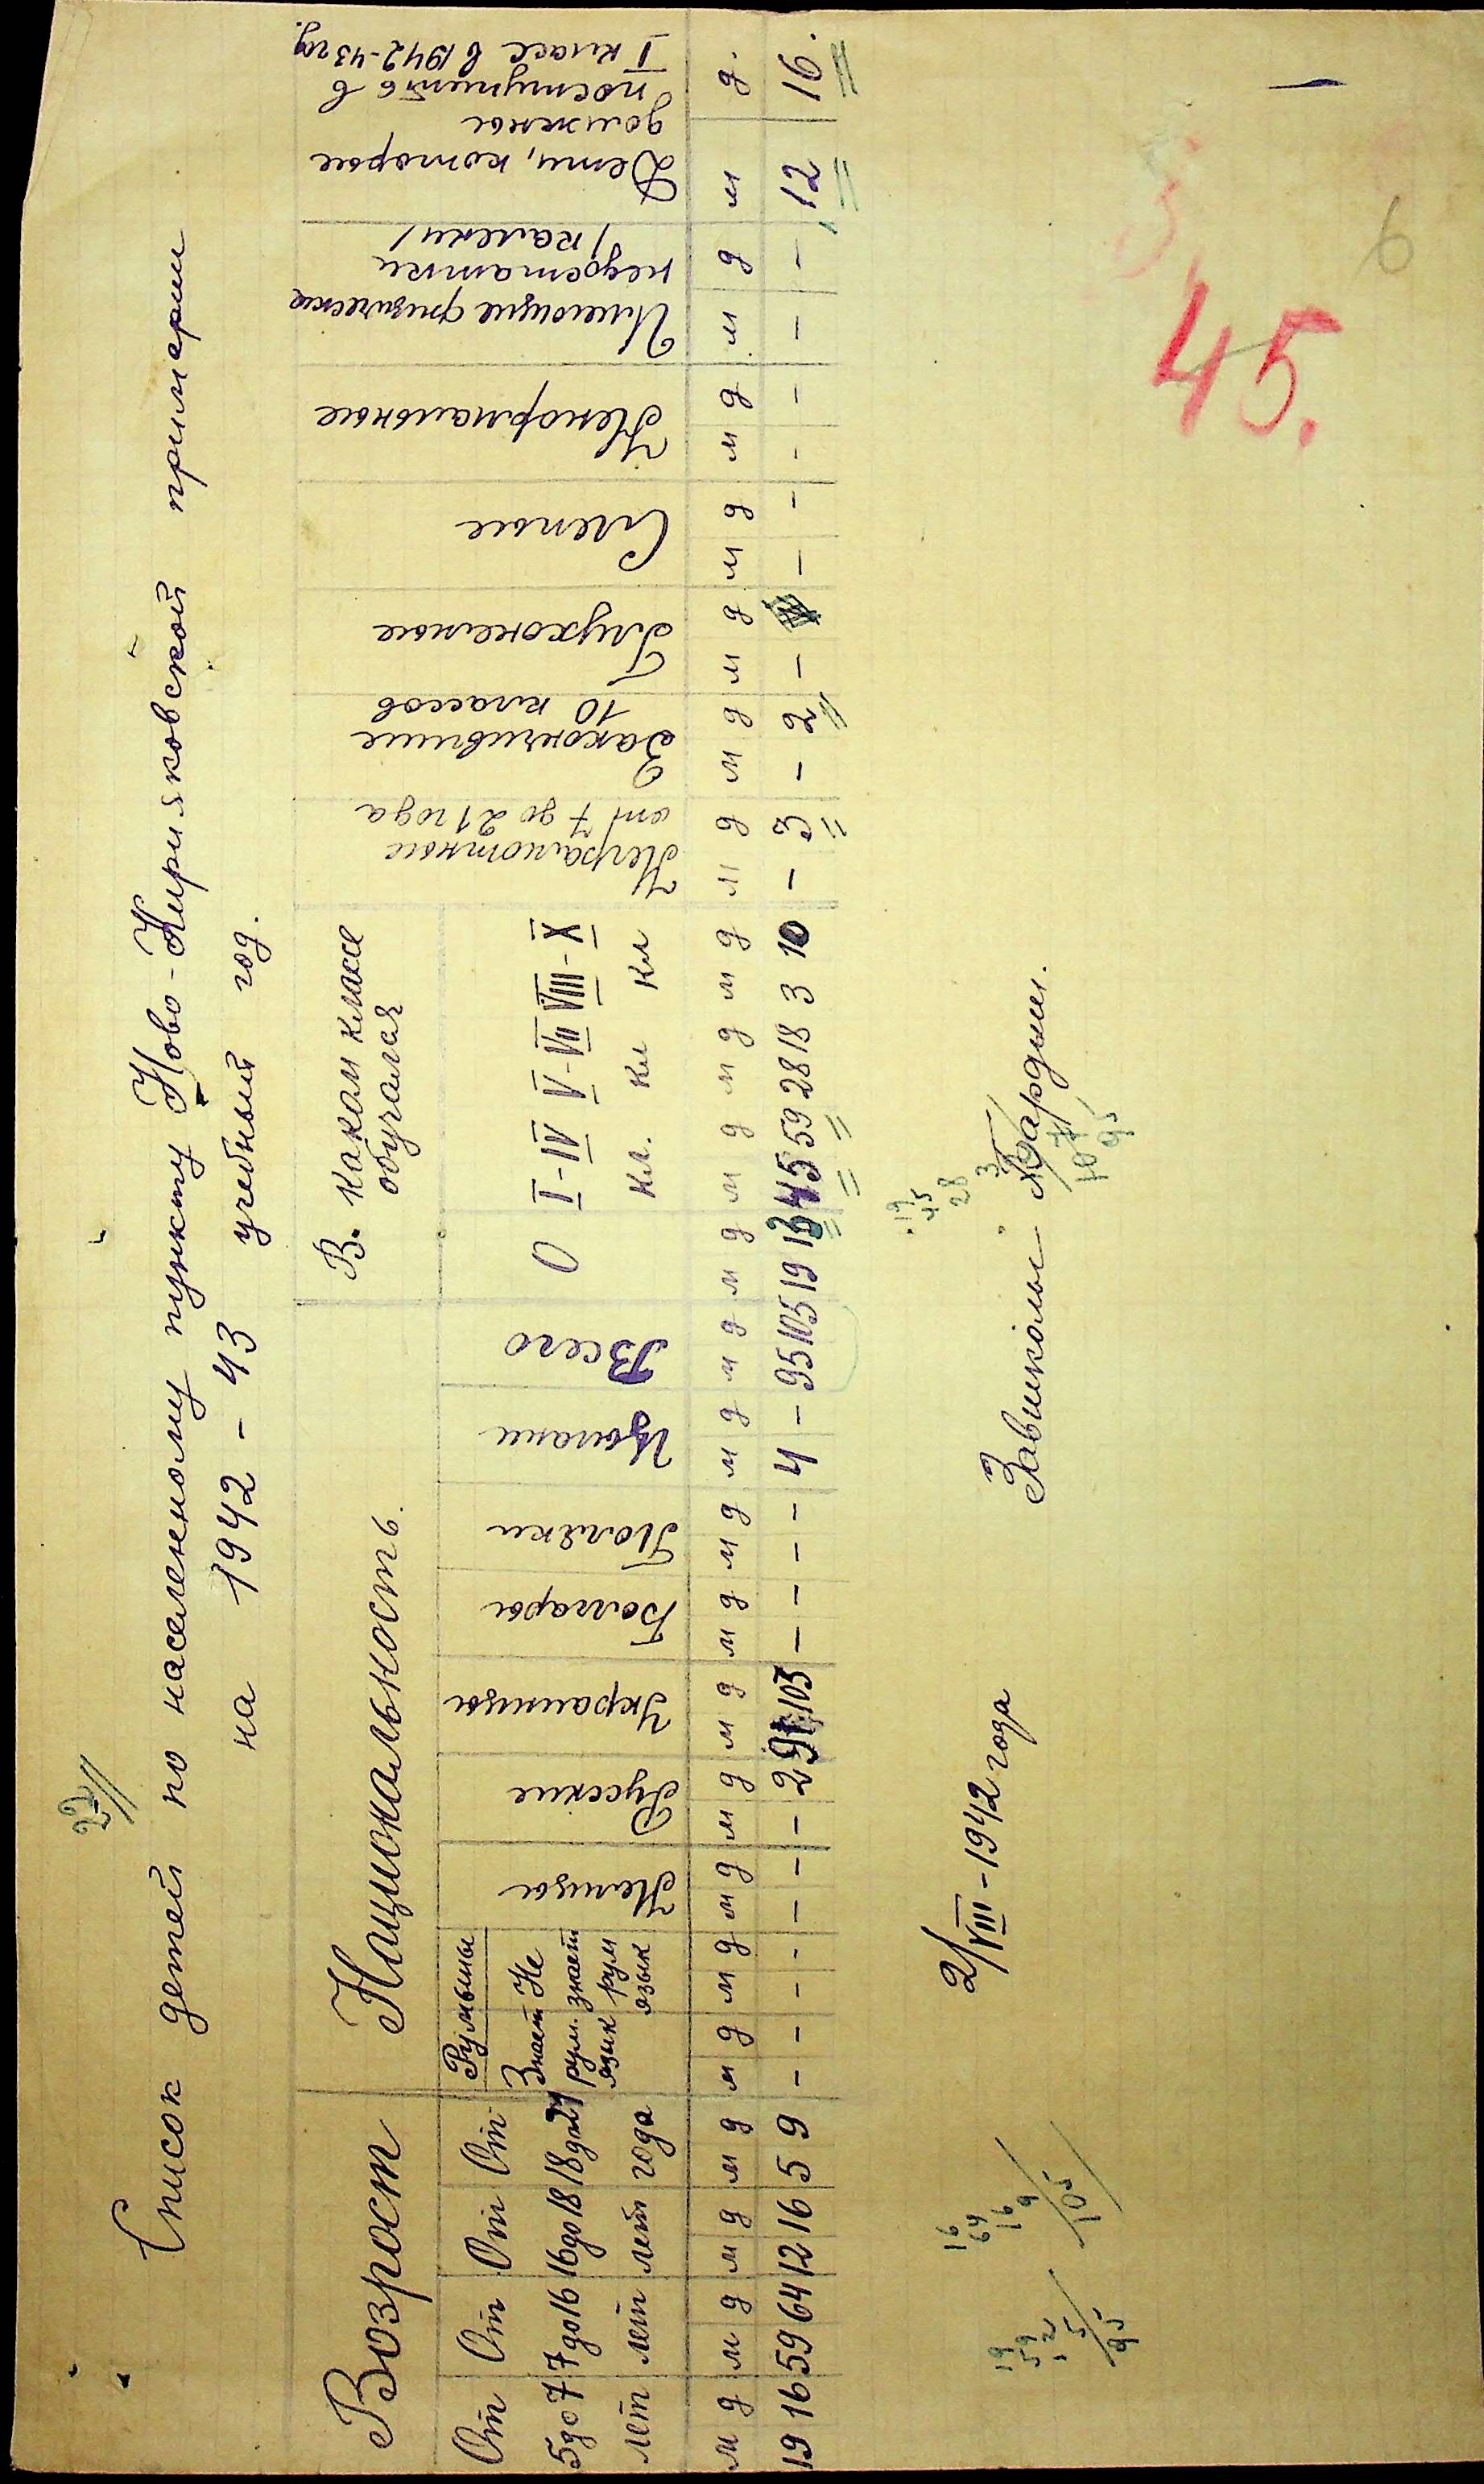 Список детей по населенному пункту Ново-Кирияковской примарии
на 1942 - 43 учебный год.
Возраст
Национальность.
В каком классе
обучался
От
5 до 7
лет
От
7 до 16
лет
От
16 до 18
лет
От
18 до 21
года
Румыны
Знает
рум.
язык
Не
знает
рум
язык
Немцы
Русские
Украинцы
Болгары
Поляки
Цыгане
Всего
О
I-IV
кл.
V-VII
кл
VIII-X
кл
Неграмотные
от 7 до 21 года
Закончившие
10 классов
Глухонемые
Слепые
Ненормальные
Имеющие физические
недостатки
/калеки/
Дети, которые
должны
поступить в
I класс в 1942-43 год.
м д м д м д м д м д м д м д м д м д м д м д м д м д м д м д м д м д м д м д м д м д м д м д м д.
19 16 59 64 12 16 5 9 - - - - - - - 2 91 103 - - - - 4 - 95 105 19 13 45 59 28 18 3 10 - 3 - 2 - - - - - - - 12 16.
2/VIII - 1942 года
Завшколы
19
59
12
5
95
16
64
16
9
105
19
45
28
3
95
45.
6